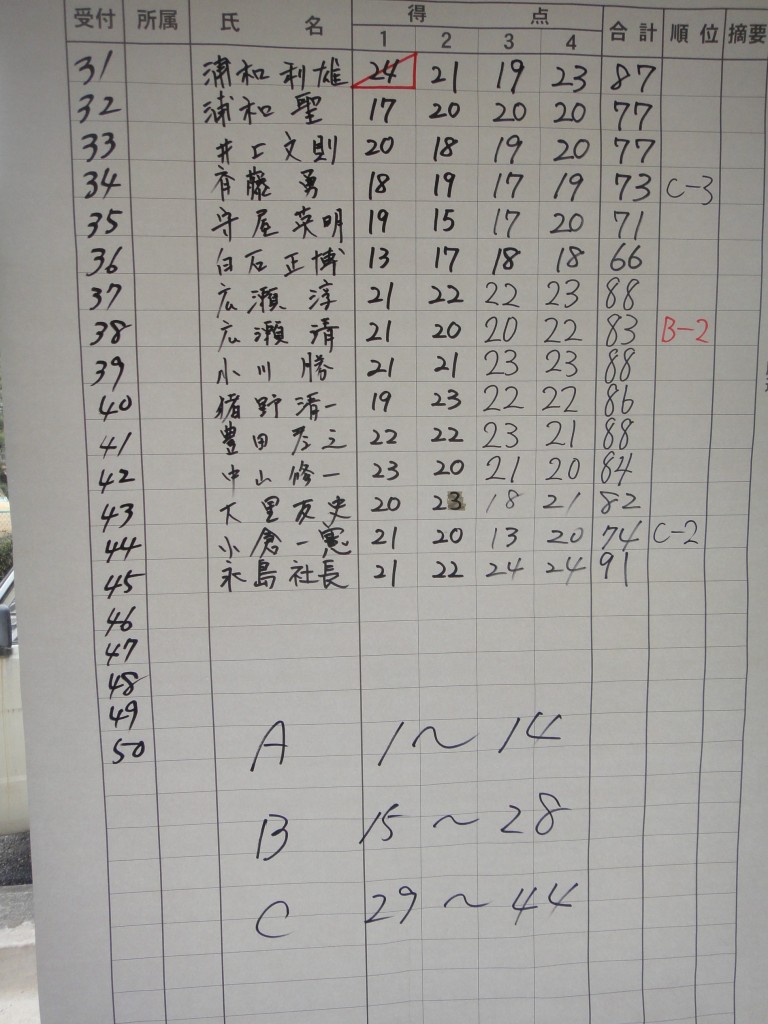 受付 所属 氏 名 得 点 合計 順位 摘要
1 2 3 4
31 浦和利雄 24 21 19 23 87
32 浦和 聖 17 20 20 20 77
33 井上文則 20 18 19 20 77
34 斉藤 勇 18 19 17 19 73 C-3
35 守屋英明 19 15 17 20 71
36 白石正博 13 17 18 18 66
37 広瀬 淳 21 22 22 23 88
38 広瀬 清 21 20 20 22 83 B-2
39 小川 勝 21 21 23 23 88
40 猪野清一 19 23 22 22 86
41 豊田 22 22 23 21 88
42 中山修一 23 20 21 20 84
43 大里友史 20 23 18 21 82
44 小倉一憲 21 20 13 20 74 C-2
45 永島社長 21 22 24 24 91
46
47
48
49
50
A 1～14
B 15～28
C 29～44